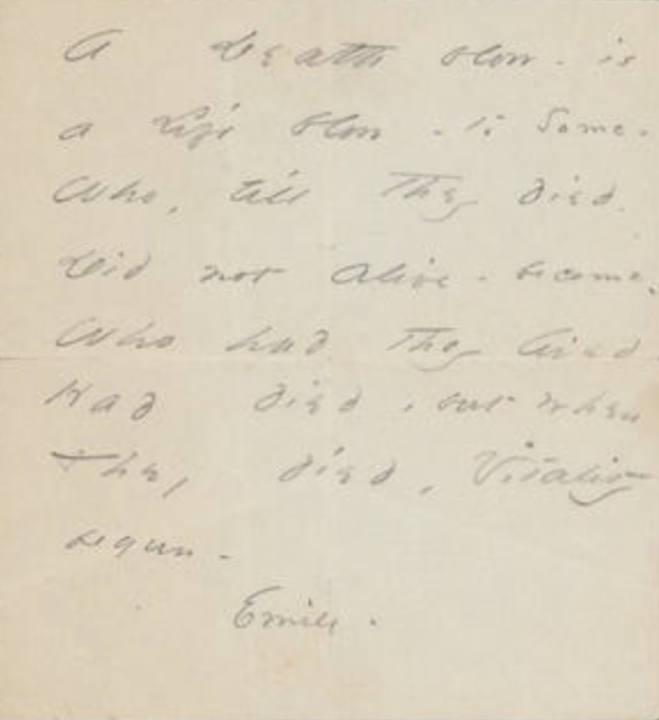 A Death blow - is
a Life blow - to Some -
Who, till They died,
Did not Alive - become.
Who had They lived
Had died, but when
They died, Vitality
begun -
Emily.